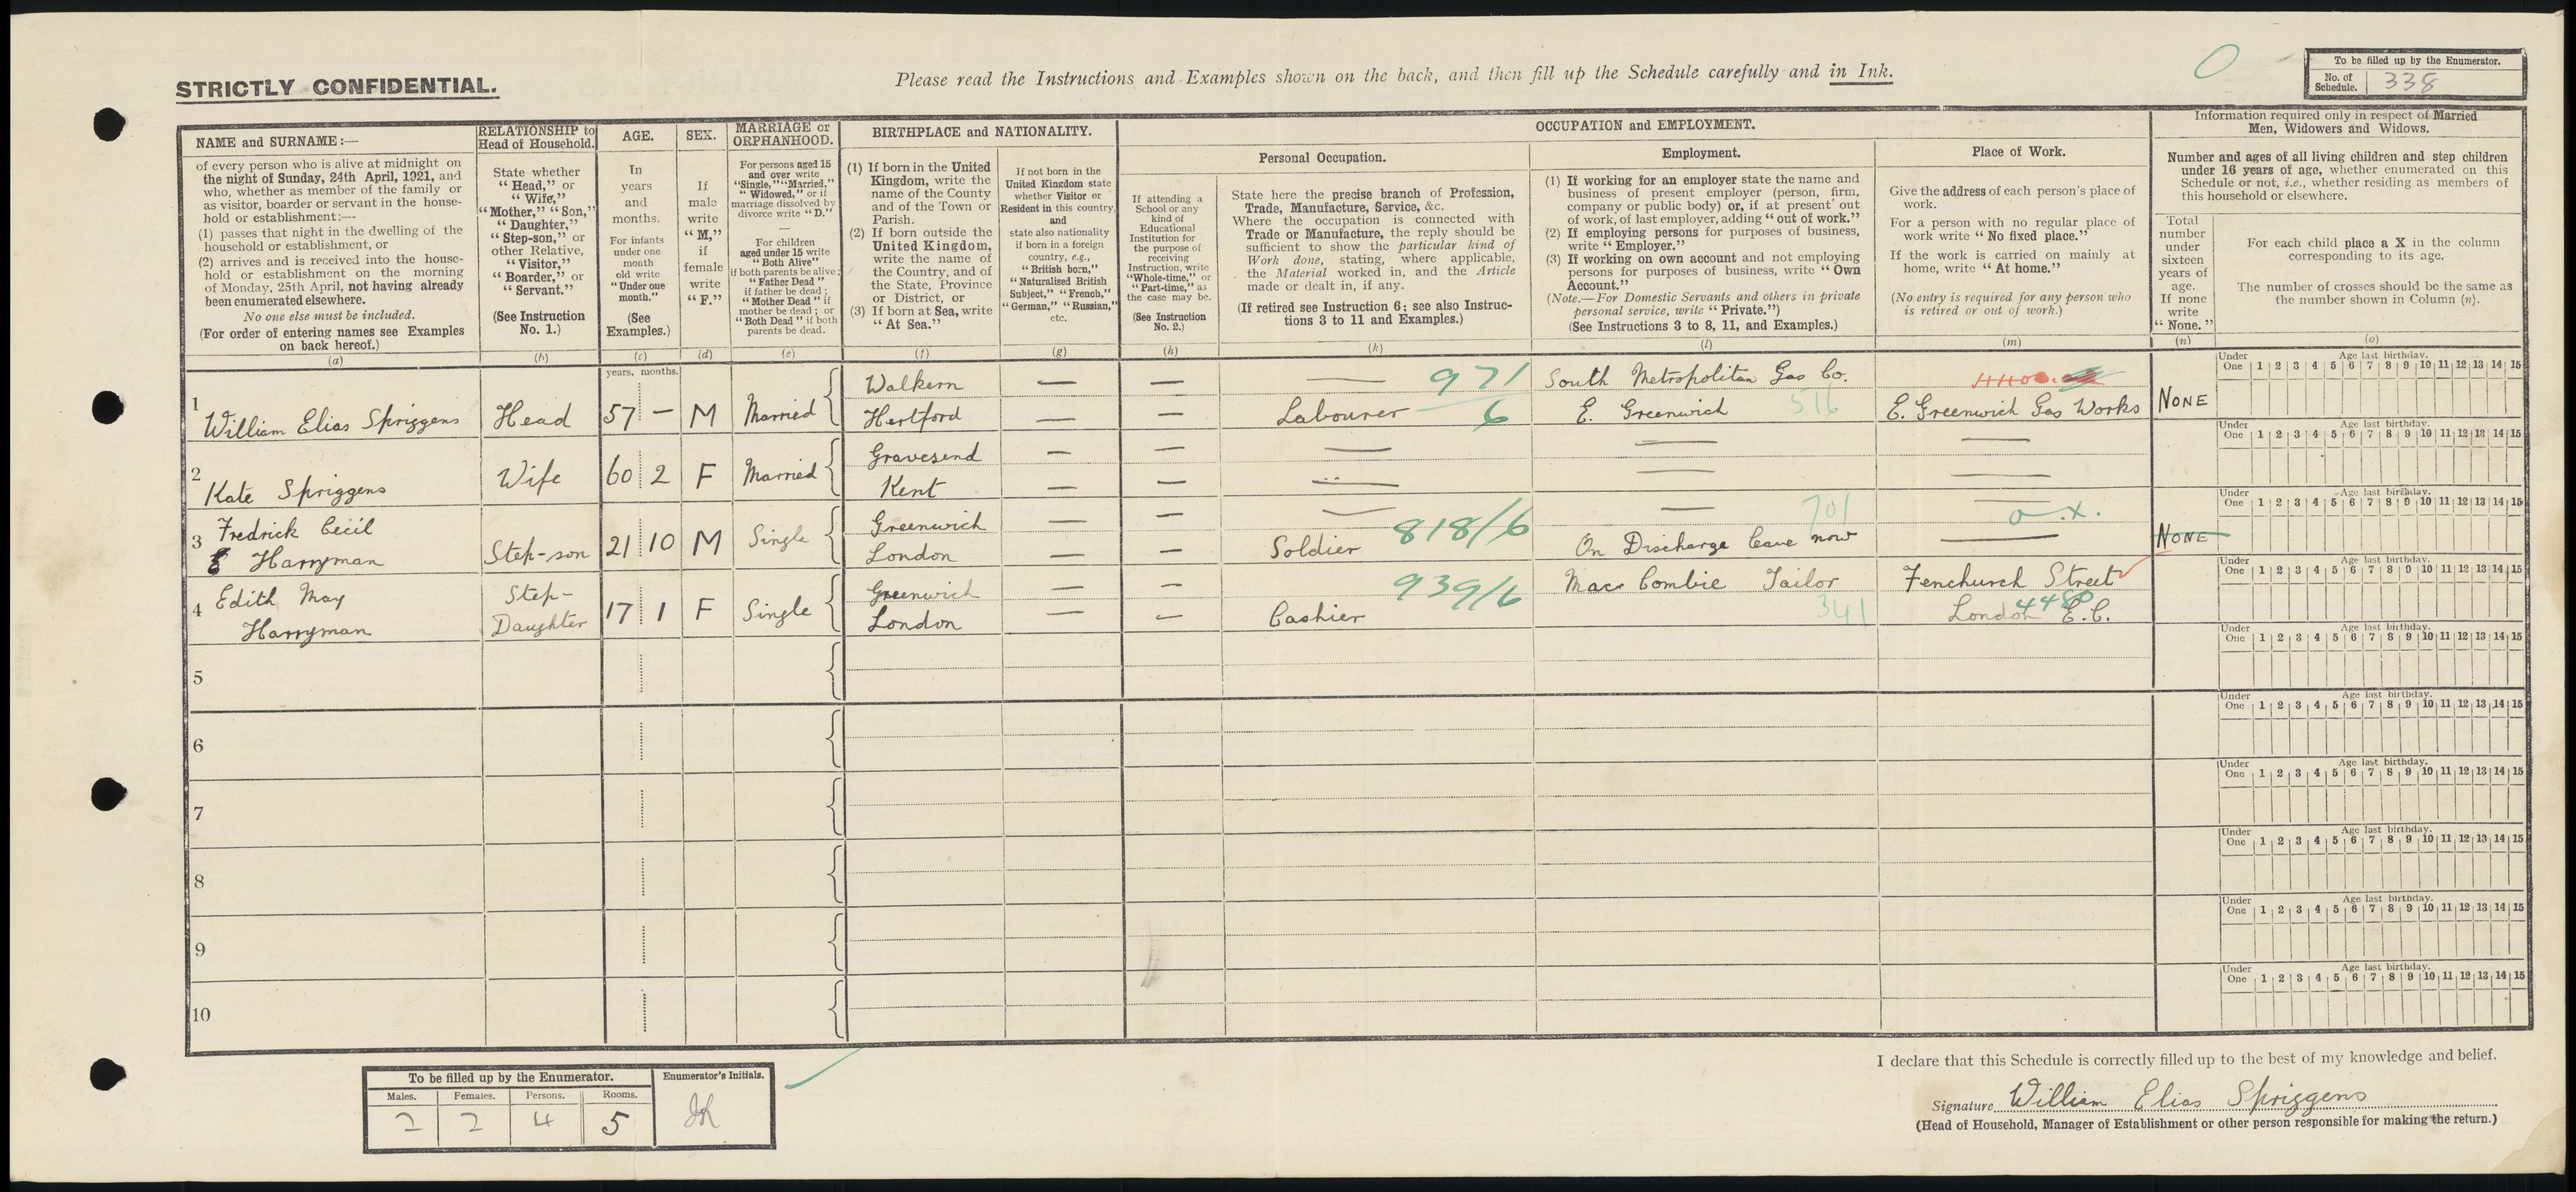 STRICTLY CONFIDENTIAL.
Please read the Instructions and Examples shown on the back, and then fill up the Schedule carefully and in Ink.
To be filled up by the Enumerator.
No. of Schedule. 338
NAME and SURNAME :—
of every person who is alive at midnight on
the night of Sunday, 24th April, 1921, and
who, whether as member of the family or
as visitor, boarder or servant in the house-
hold or establishment :—
(1) passes that night in the dwelling of the
household or establishment, or
(2) arrives and is received into the house-
hold or establishment on the morning
of Monday, 25th April, not having already
been enumerated elsewhere.
No one else must be included.
(For order of entering names see Examples
on back hereof.)
(a)
RELATIONSHIP to
Head of Household.
State whether
“Head,” or
“Wife,”
“Mother,” “Son,”
“Daughter,”
“Step-son,” or
other Relative,
“Visitor,”
“Boarder,” or
“Servant.”
(See Instruction
No. 1.)
(b)
AGE.
In
years
and
months.
For infants
under one
month
old write
“Under one
month.”
(See
Examples.)
(c)
SEX.
If
male
write
“M,”
if
female
write
“F.”
(d)
MARRIAGE or
ORPHANHOOD.
For persons aged 15
and over write
“Single,” “Married,”
“Widowed,” or if
marriage dissolved by
divorce write “D.”
—
For children
aged under 15 write
“Both Alive”
if both parents be alive ;
“Father Dead”
if father be dead ;
“Mother Dead” if
mother be dead ; or
“Both Dead” if both
parents be dead.
(e)
BIRTHPLACE and NATIONALITY.
(1) If born in the United
Kingdom, write the
name of the County
and of the Town or
Parish.
(2) If born outside the
United Kingdom,
write the name of
the Country, and of
the State, Province
or District, or
(3) If born at Sea, write
“At Sea.”
(f)
If not born in the
United Kingdom state
whether Visitor or
Resident in this country,
and
state also nationality
if born in a foreign
country, e.g.,
“British born,”
“Naturalised British
Subject,” “French,”
“German,” “Russian,”
etc.
(g)
OCCUPATION and EMPLOYMENT.
If attending a
School or any
kind of
Educational
Institution for
the purpose of
receiving
Instruction, write
“Whole-time,” or
“Part-time,” as
the case may be.
(See Instruction
No. 2.)
(h)
Personal Occupation.
State here the precise branch of Profession,
Trade, Manufacture, Service, &c.
Where the occupation is connected with
Trade or Manufacture, the reply should be
sufficient to show the particular kind of
Work done, stating, where applicable,
the Material worked in, and the Article
made or dealt in, if any.
(If retired see Instruction 6 ; see also Instruc-
tions 3 to 11 and Examples.)
(k)
Employment.
(1) If working for an employer state the name and
business of present employer (person, firm,
company or public body) or, if at present out
of work, of last employer, adding “out of work.”
(2) If employing persons for purposes of business,
write “Employer.”
(3) If working on own account and not employing
persons for purposes of business, write “Own
Account.”
(Note.—For Domestic Servants and others in private
personal service, write “Private.”)
(See Instructions 3 to 8, 11, and Examples.)
(l)
Place of Work.
Give the address of each person's place of
work.
For a person with no regular place of
work write “No fixed place.”
If the work is carried on mainly at
home, write “At home.”
(No entry is required for any person who
is retired or out of work.)
(m)
Information required only in respect of Married
Men, Widowers and Widows.
Number and ages of all living children and step children
under 16 years of age, whether enumerated on this
Schedule or not, i.e., whether residing as members of
this household or elsewhere.
Total
number
under
sixteen
years of
age.
If none
write
“None.”
(n)
For each child place a X in the column
corresponding to its age.
The number of crosses should be the same as
the number shown in Column (n).
(o)
years. months.
Under One Age last birthday. 1 2 3 4 5 6 7 8 9 10 11 12 13 14 15
Walkern — — — 971 South Metropolitan Gas Co.
1 William Elias Spriggens Head 57 – M Married Hertford — — Labourer 6 E. Greenwich 516 E. Greenwich Gas Works NONE
Under One Age last birthday. 1 2 3 4 5 6 7 8 9 10 11 12 13 14 15
Gravesend — — — — —
2 Kate Spriggens Wife 60 2 F Married Kent — — — — —
Under One Age last birthday. 1 2 3 4 5 6 7 8 9 10 11 12 13 14 15
3 Fredrick Cecil Greenwich — — — 818/6 — 701 —
Harryman Step-son 21 10 M Single London — — Soldier On Discharge leave now — NONE
Under One Age last birthday. 1 2 3 4 5 6 7 8 9 10 11 12 13 14 15
4 Edith May Step- Greenwich — — 939/6 Mac Combie Tailor Fenchurch Street
Harryman Daughter 17 1 F Single London — — Cashier 341 London E.C.
Under One Age last birthday. 1 2 3 4 5 6 7 8 9 10 11 12 13 14 15
5
Under One Age last birthday. 1 2 3 4 5 6 7 8 9 10 11 12 13 14 15
6
Under One Age last birthday. 1 2 3 4 5 6 7 8 9 10 11 12 13 14 15
7
Under One Age last birthday. 1 2 3 4 5 6 7 8 9 10 11 12 13 14 15
8
Under One Age last birthday. 1 2 3 4 5 6 7 8 9 10 11 12 13 14 15
9
Under One Age last birthday. 1 2 3 4 5 6 7 8 9 10 11 12 13 14 15
10
To be filled up by the Enumerator.
Males. Females. Persons. Rooms.
2 2 4 5
Enumerator's Initials.
I declare that this Schedule is correctly filled up to the best of my knowledge and belief.
Signature William Elias Spriggens
(Head of Household, Manager of Establishment or other person responsible for making the return.)